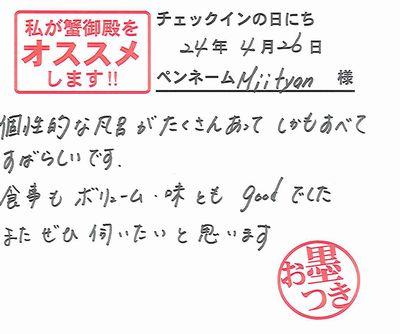 私が蟹御殿を
オススメ
します!!
チェックインの日にち
24年4月26日
ペンネーム Miityan 様
個性的な風呂がたくさんあって しかもすべて
すばらしいです.
食事も ボリューム・味とも goodでした
また ぜひ 伺いたいと思います
お墨つき